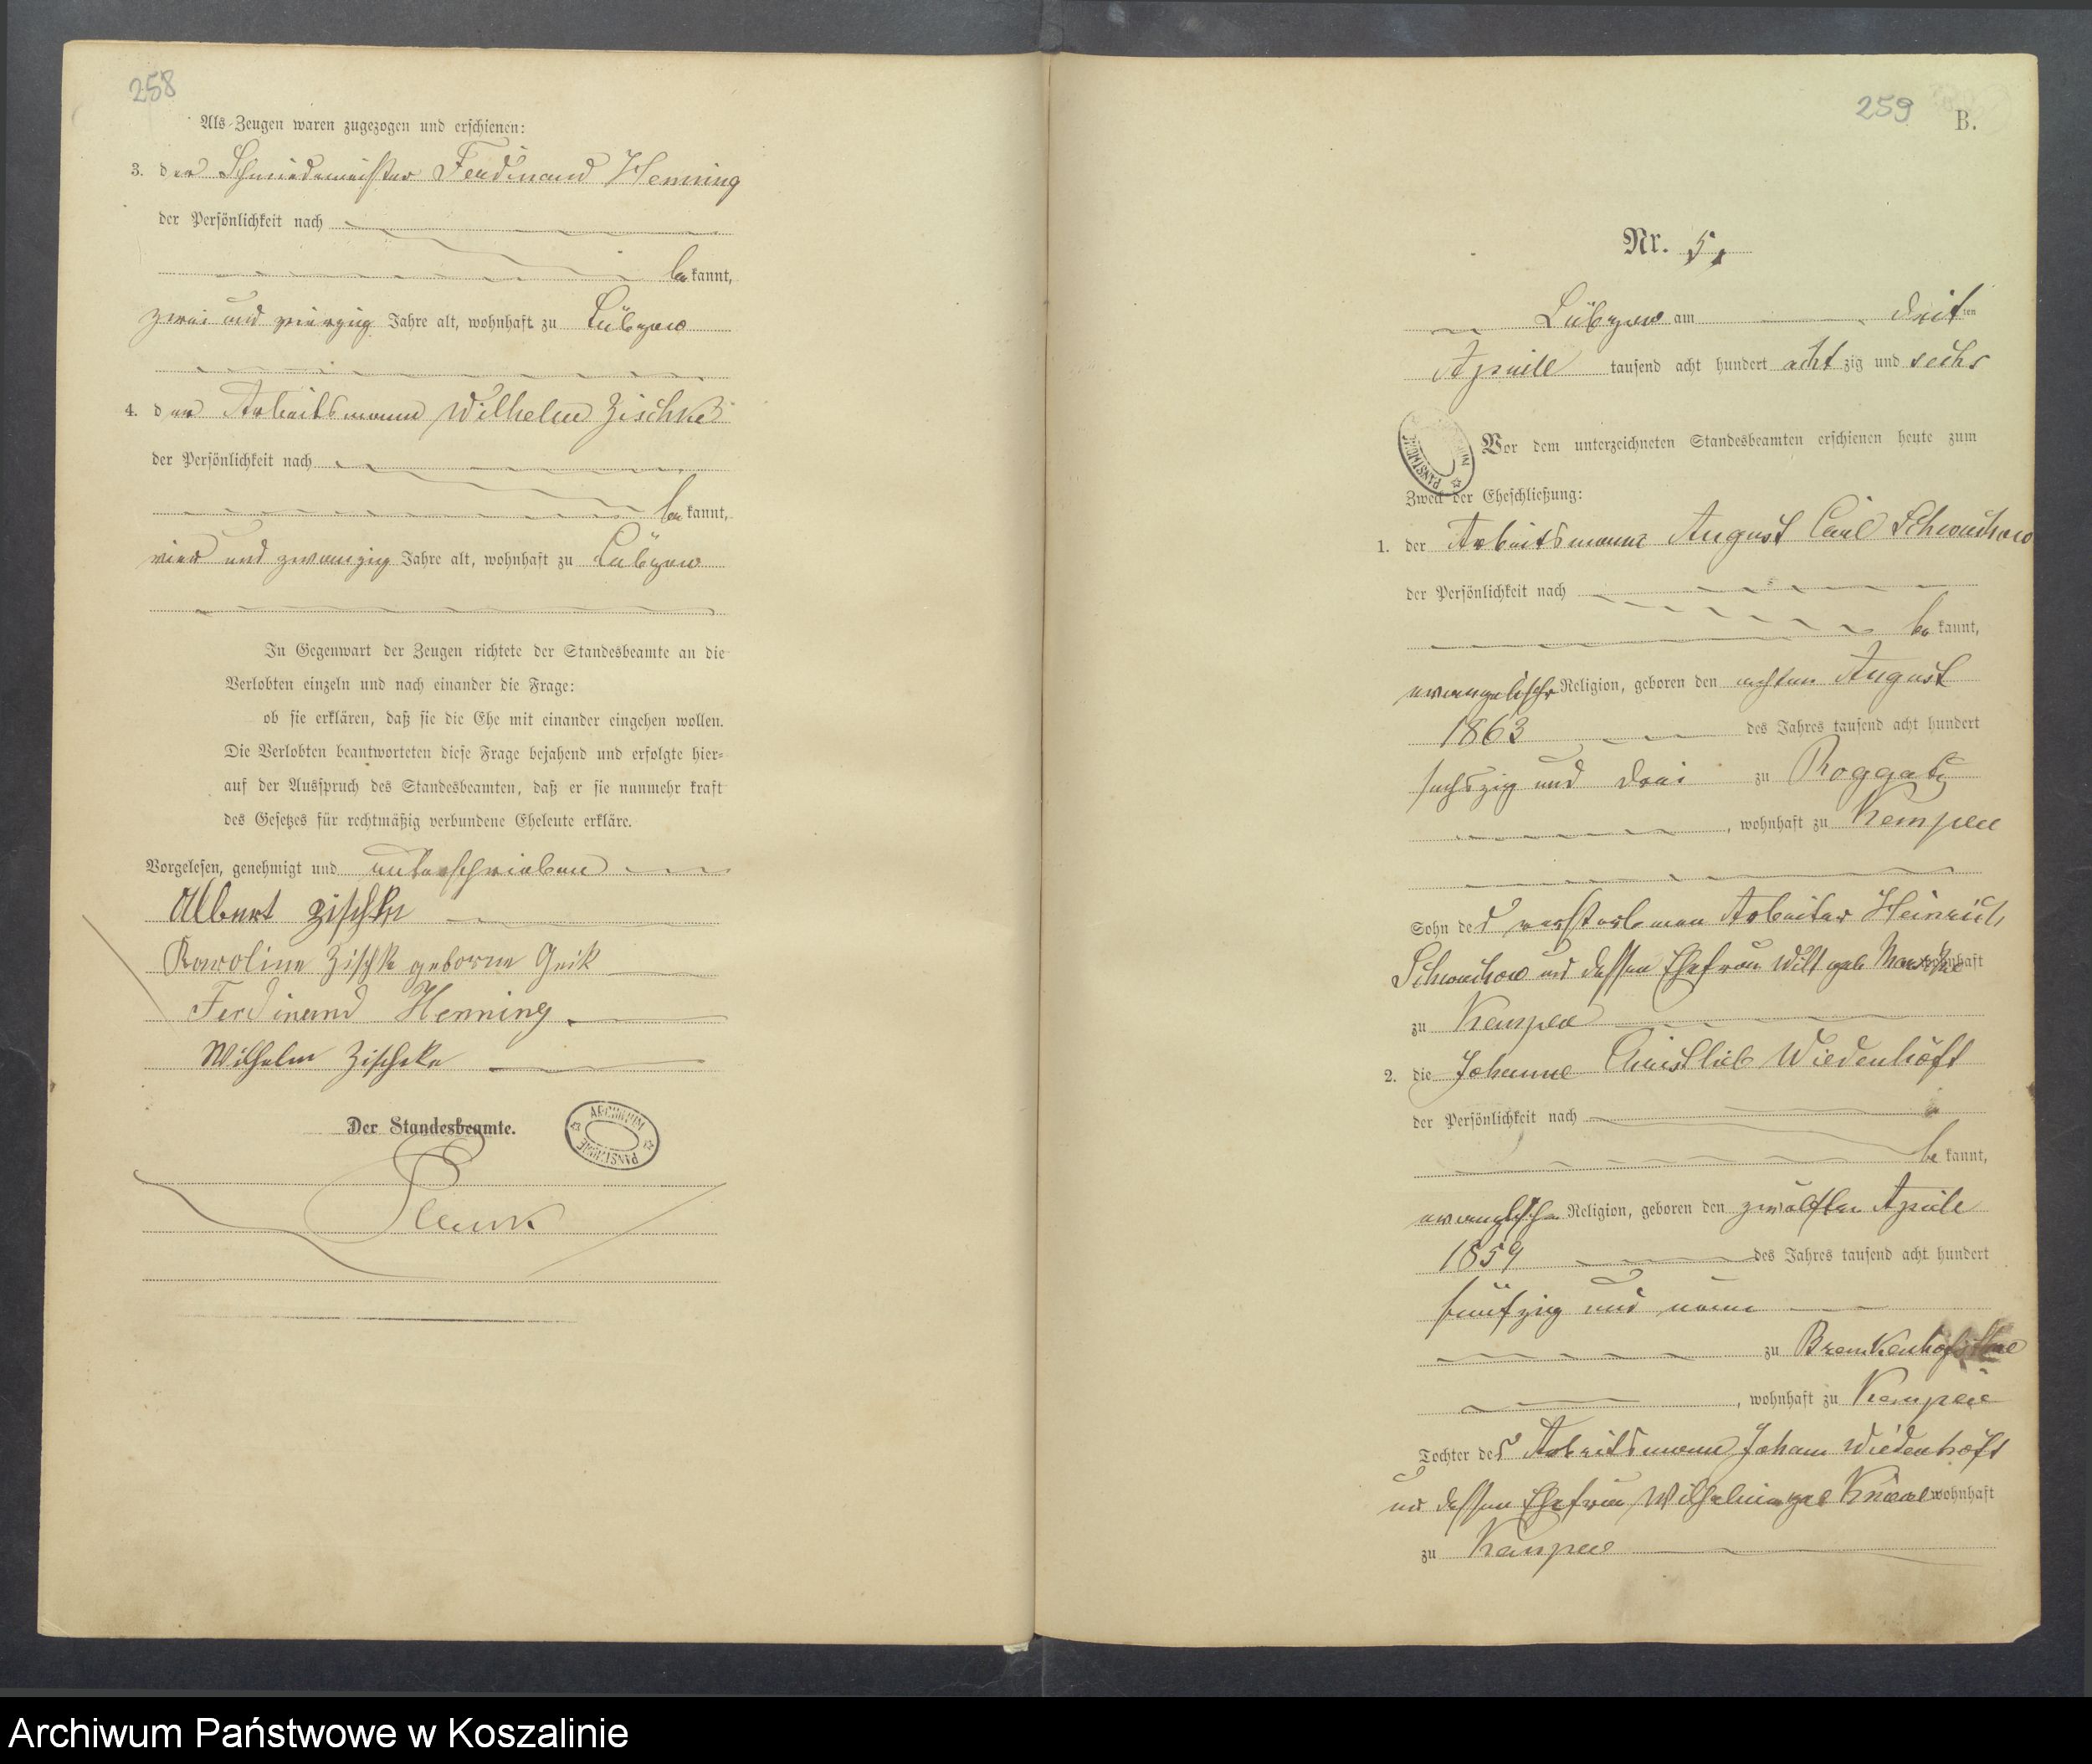 258
Als Zeugen waren zugezogen und erschienen:
3. der Schmiedemeister Ferdinand Henning
der Persönlichkeit nach
bekannt,
zwei und vierzig Jahre alt, wohnhaft zu Lübzow
4. der Arbeitsmann Wilhelm Zischke
der Persönlichkeit nach
bekannt,
vier und zwanzig Jahre alt, wohnhaft zu Lübzow
In Gegenwart der Zeugen richtete der Standesbeamte an die
Verlobten einzeln und nach einander die Frage:
ob sie erklären, daß sie die Ehe mit einander eingehen wollen.
Die Verlobten beantworteten diese Frage bejahend und erfolgte hier-
auf der Ausspruch des Standesbeamten, daß er sie nunmehr kraft
des Gesetzes für rechtmäßig verbundene Eheleute erkläre.
Vorgelesen, genehmigt und unterschrieben
Albert Zischke
Karoline Zischke geborne Geik
Ferdinand Henning
Wilhelm Zischke
Der Standesbeamte.
ARCHIWUM PAŃSTWOWE
259
B.
Nr. 5.
Lübzow am dritten
Aprill tausend acht hundert achtzig und sechs
Vor dem unterzeichneten Standesbeamten erschienen heute zum
Zweck der Eheschließung:
1. der Arbeitsmann August Carl Schwuchow
der Persönlichkeit nach
bekannt,
evangelischer Religion, geboren den achten August
1863 des Jahres tausend acht hundert
sechszig und drei zu Roggatz
, wohnhaft zu Kempen
Sohn des verstorbenen Arbeiter Heinrich
Schwuchow und dessen Ehefrau geb wohnhaft
zu Kempen
2. die Johanne Christlieb Wiedenhöft
der Persönlichkeit nach
bekannt,
evangelischer Religion, geboren den zwölften Aprill
1859 des Jahres tausend acht hundert
fünfzig und neun
zu
, wohnhaft zu Kempen
Tochter des Arbeitsmann Johann Wiedenhöft
und dessen Ehefrau Wilhelmine geb wohnhaft
zu Kempen
Archiwum Państwowe w Koszalinie